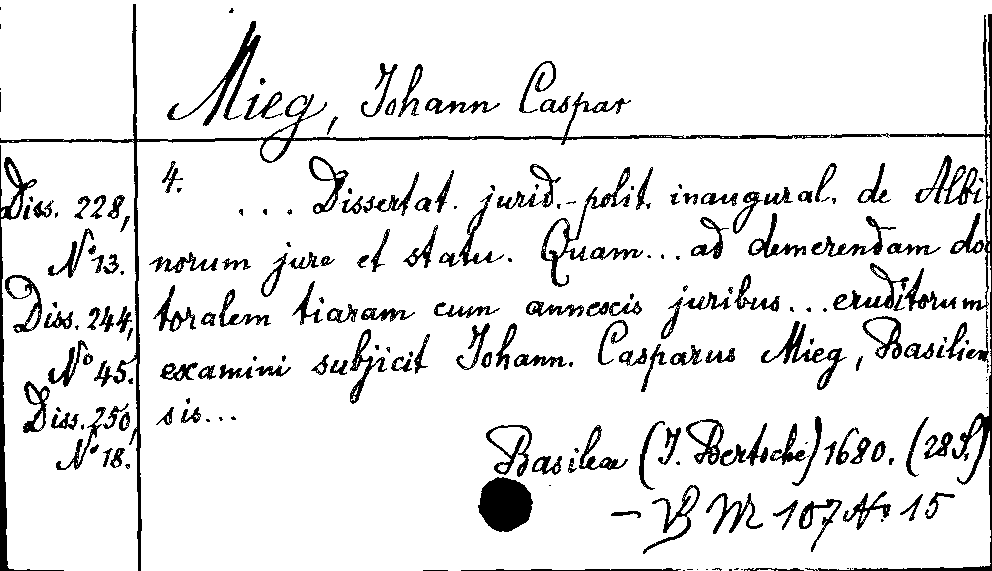 Mieg, Johann Caspar
Diss. 228,
No 13.
Diss. 244,
No 45.
Diss. 250,
No 18.
4.
... Dissertat. jurid.-polit. inaugural. de Albi
norum jure et statu. Quam... ad demerendam do
toralem tiaram cum annexis juribus... eruditorum
examini subjicit Johann. Casparus Mieg, Basilien
sis...
Basileæ (J. Bertsche) 1680. (28 S.)
– VB M 107 No 15